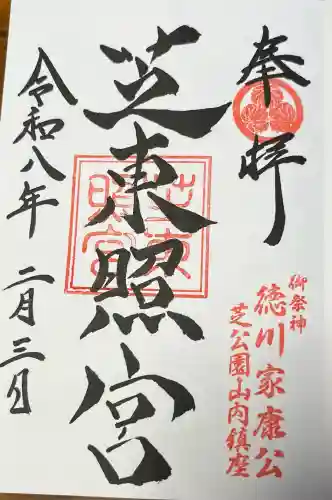 奉拝
御祭神
徳川家康公
芝公園山内鎮座
芝東照宮
芝東照宮
令和八年
二月三日